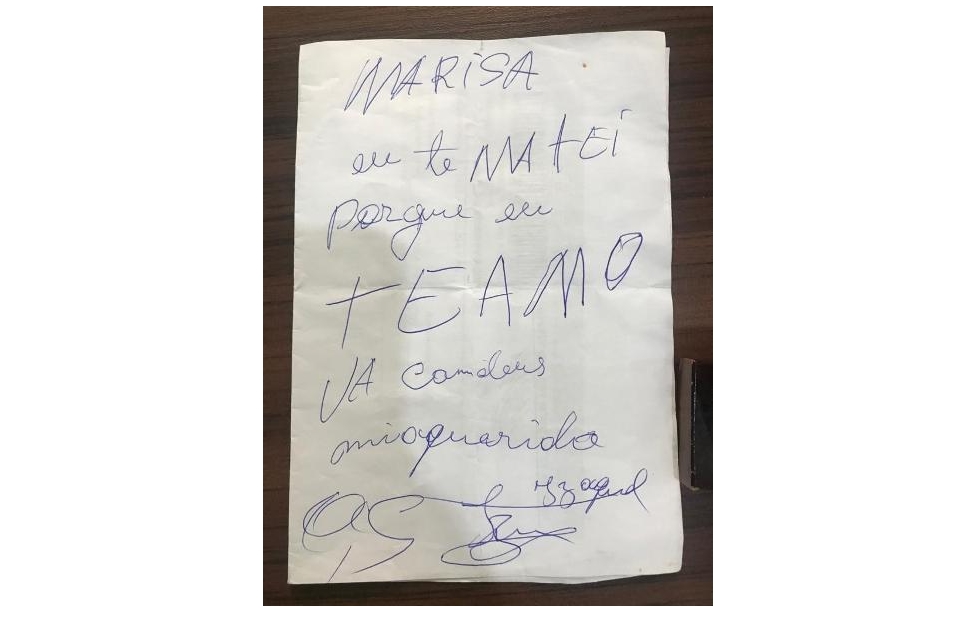 MARISA
eu te MAtEi
porque eu
tEAMO
VA comdeus
mioquerida